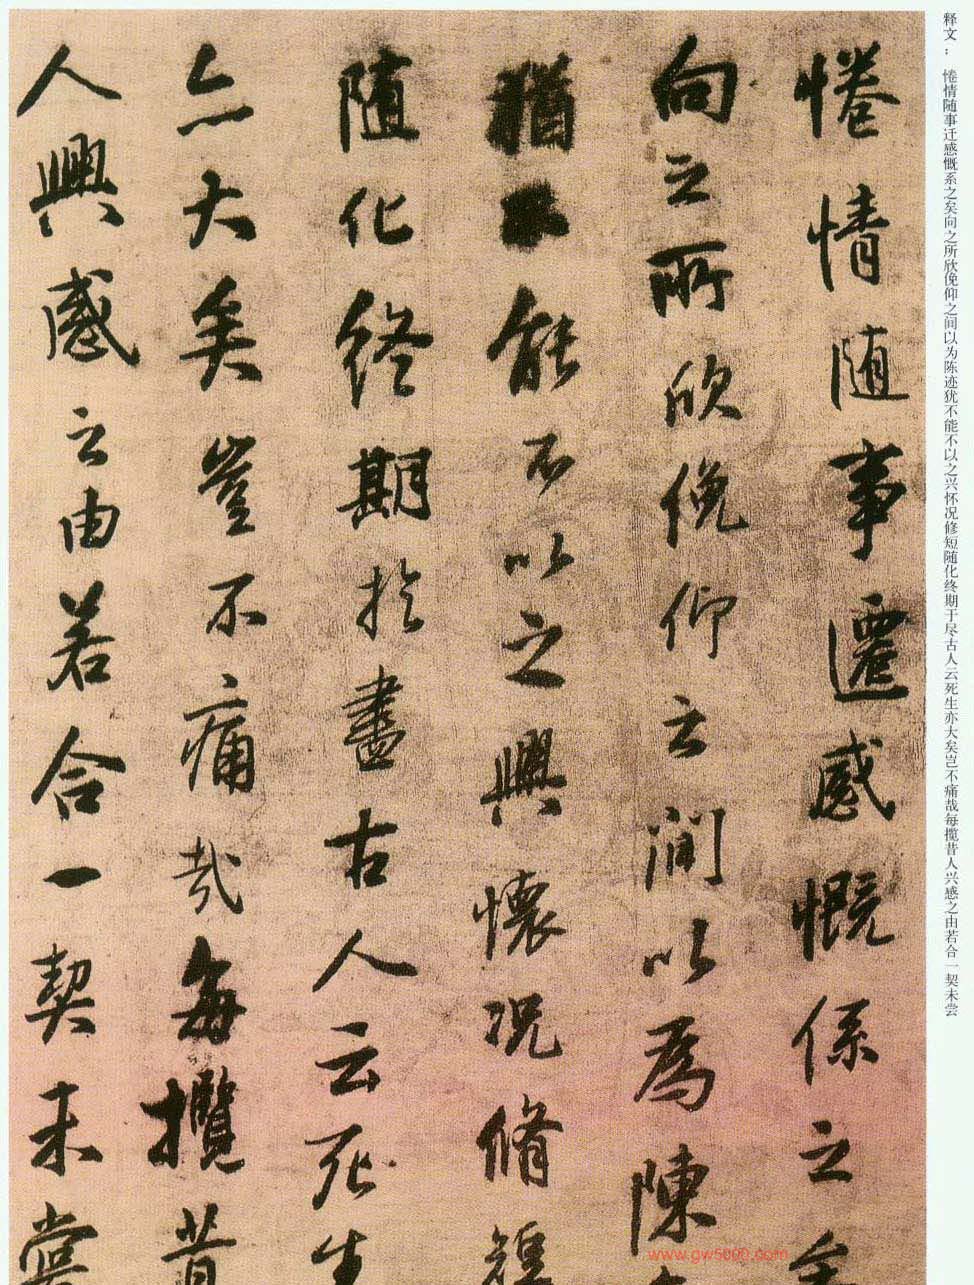 释文：倦情随事迁感慨系之矣向之所欣俛仰之间以为陈迹犹不能不以之兴怀况修短随化终期于尽古人云死生亦大矣岂不痛哉每揽昔人兴感之由若合一契未尝
惓情随事遷感慨係之矣
向之所欣俛仰之間以為陳
猶不能不以之興懷況脩短
随化終期於盡古人云死生
亦大矣豈不痛哉每攬昔
人興感之由若合一契未嘗
www.gw5000.com